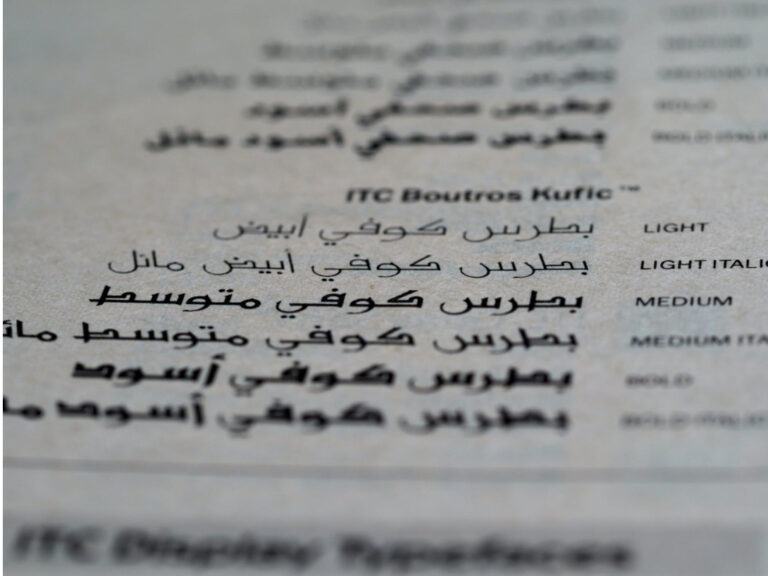 MEDIUM
بطرس صحفي أسود BOLD
بطرس صحفي أسود مائل BOLD ITALIC
ITC Boutros Kufic™
بطرس كوفي أبيض LIGHT
بطرس كوفي أبيض مائل LIGHT ITALIC
بطرس كوفي متوسط MEDIUM
بطرس كوفي متوسط مائ MEDIUM ITA
بطرس كوفي أسود BOLD
بطرس كوفي أسود ما BOLD ITALIC
ITC Display Typefaces